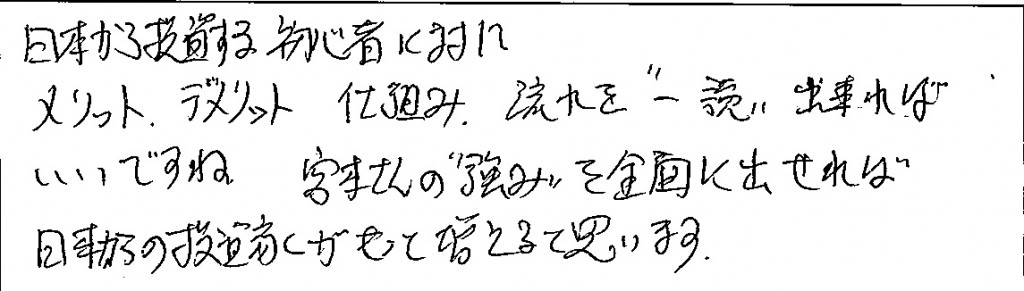 日本から投資する初心者に対に
メリット、デメリット 仕組み、流れを"一読"出来れば
いいですね 宮本さんの"強み"を全面に出せれば
日本からの投資家がもって増えると思います.